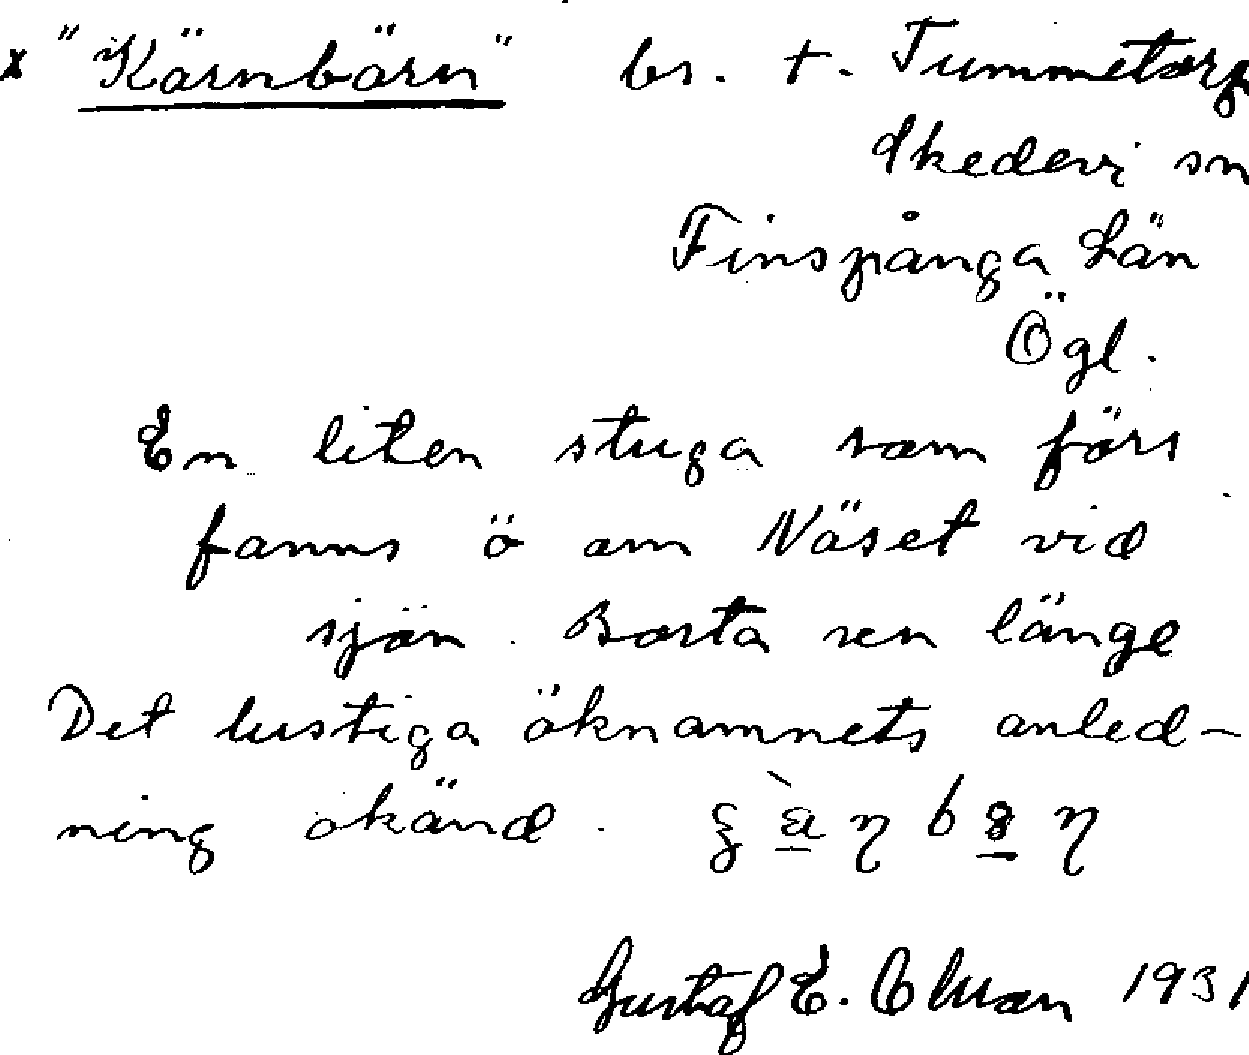 x "Kärnbärn" br. t. Tummetorp
Skedevi sn
Finspånga län
Ögl.
En liten stuga som förs
fanns ö om Näset vid
sjön. Borta sen länge
Det lustiga öknamnets anled-
ning okänd.
Gustaf E. 1931